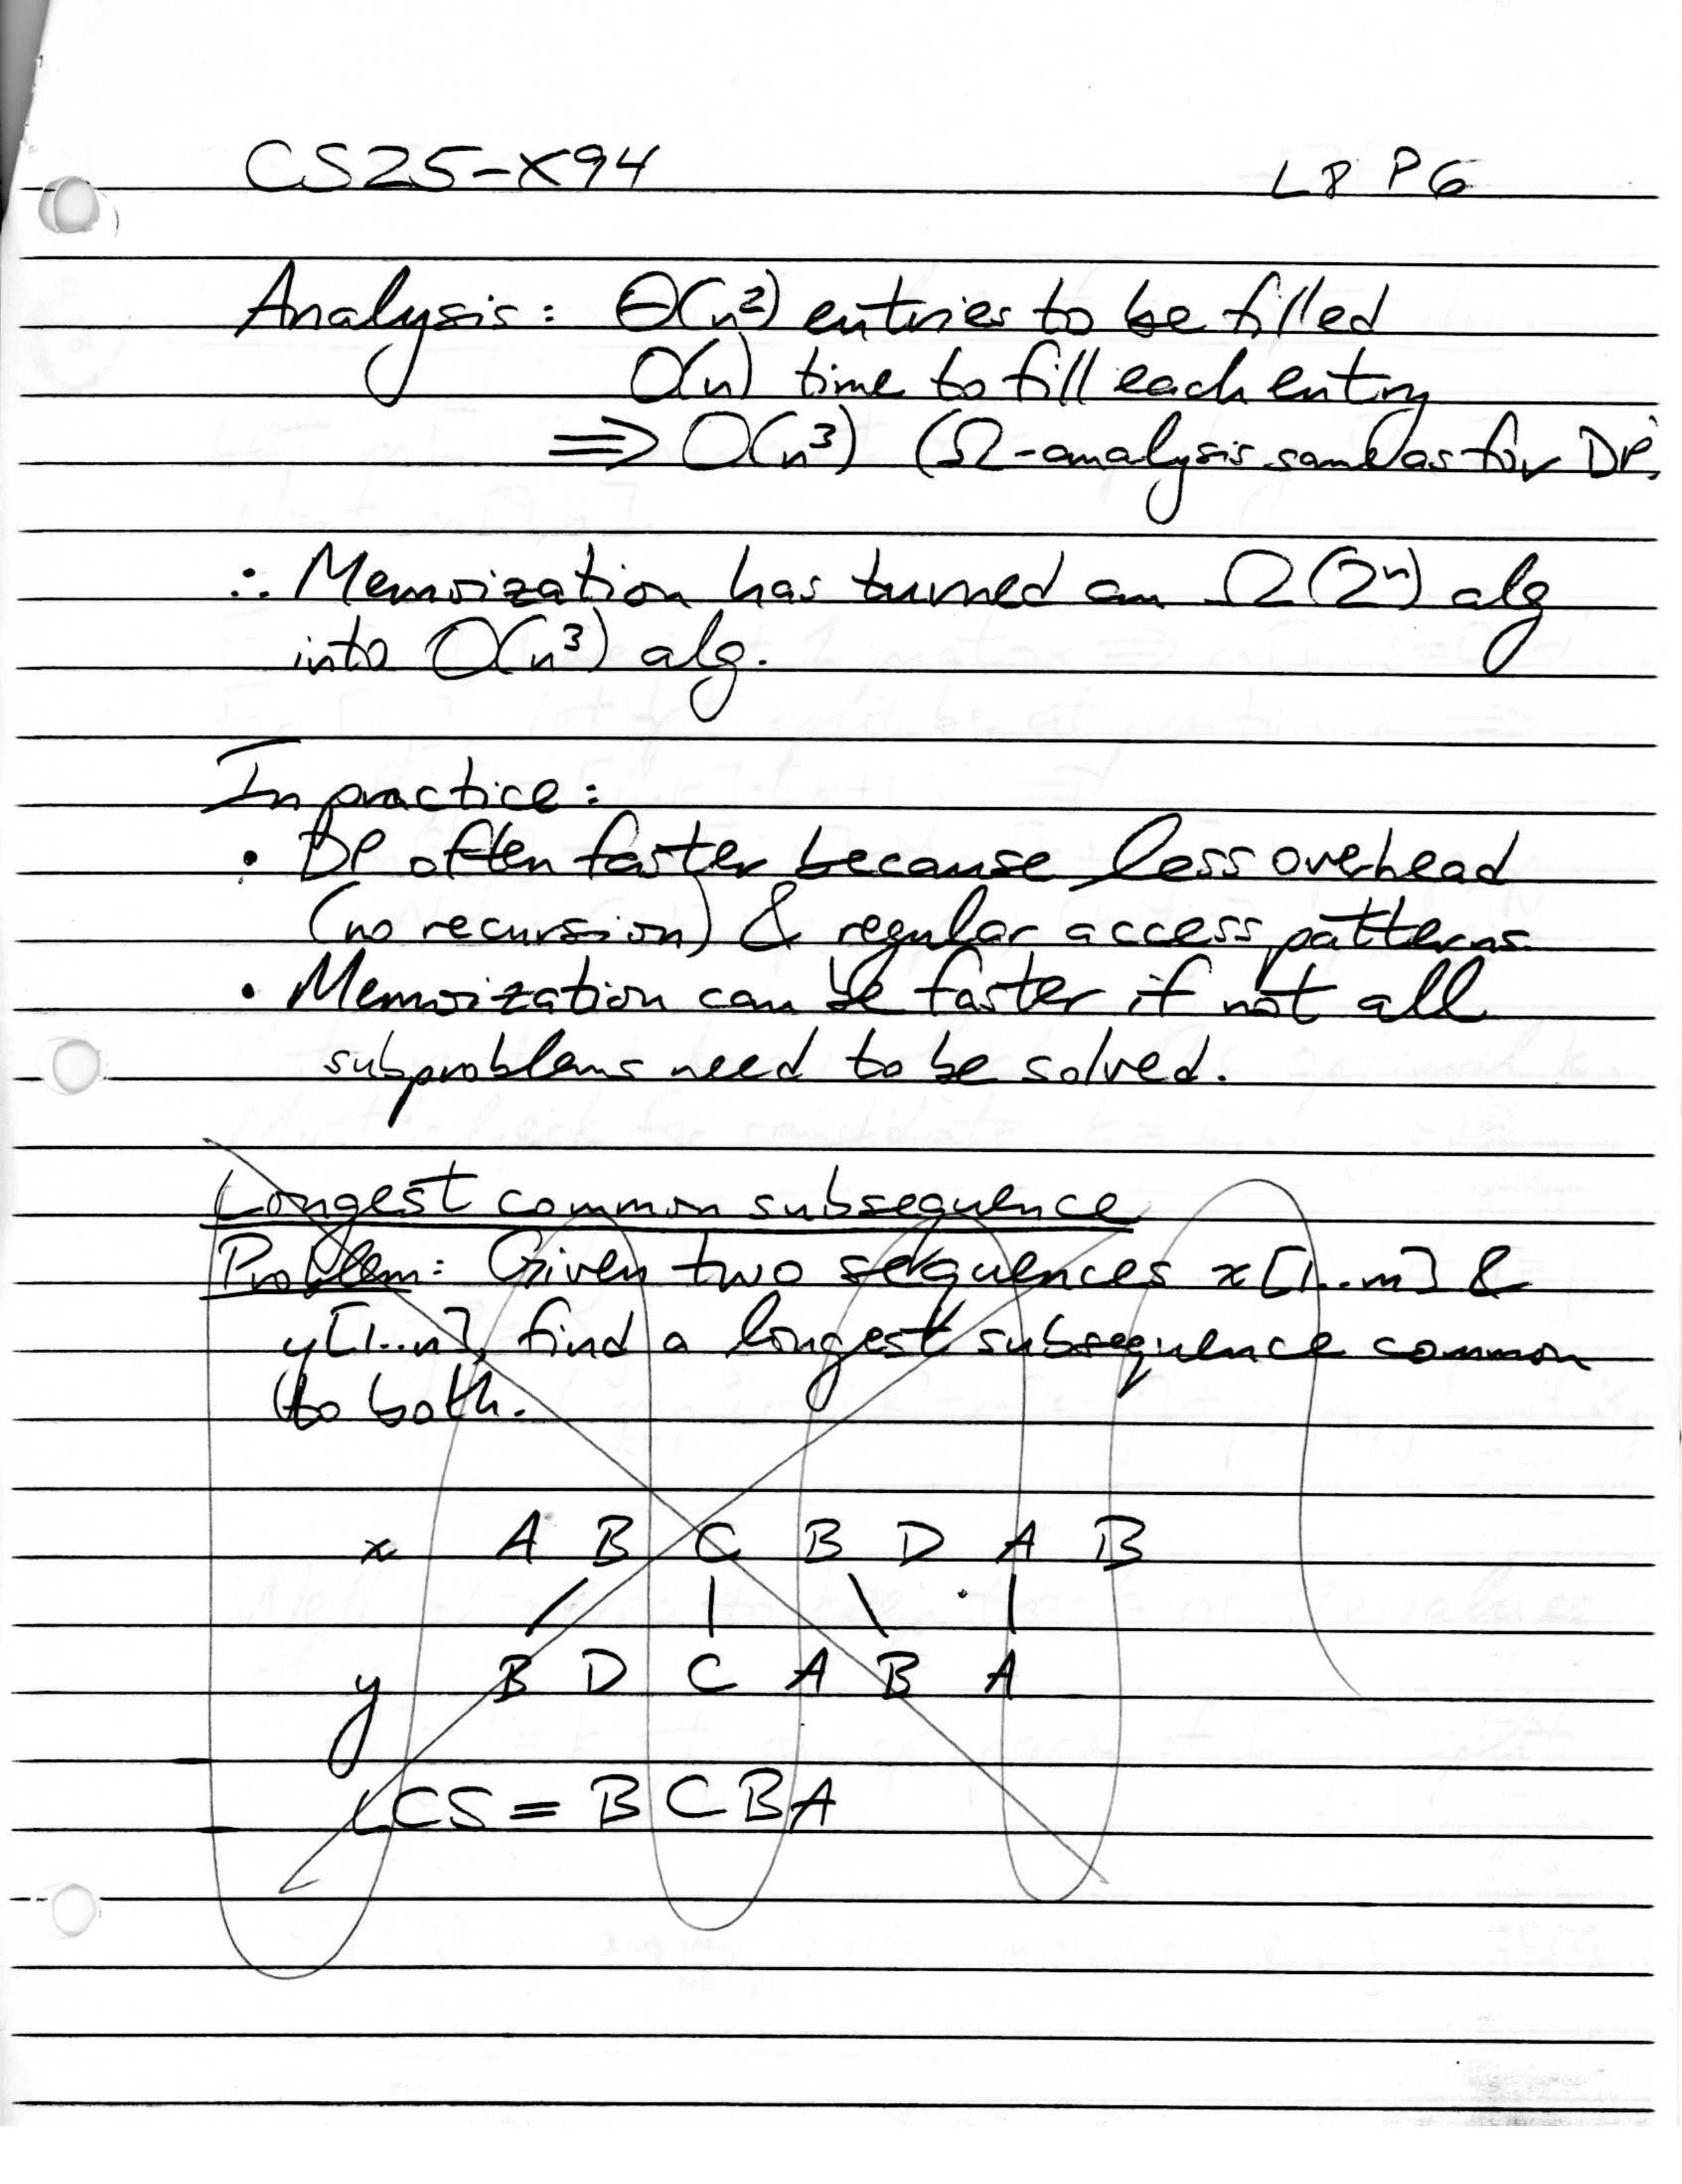 CS25-X94 L8 P6
Analysis: Θ(n²) entries to be filled
O(n) time to fill each entry
⇒ O(n³) (Ω-analysis same as for DP.
∴ Memoization has turned an Ω(2ⁿ) alg
into O(n³) alg.
In practice:
• DP often faster because less overhead
(no recursion) & regular access patterns.
• Memoization can be faster if not all
subproblems need to be solved.
Longest common subsequence
Problem: Given two sequences x[1..m] &
y[1..n], find a longest subsequence common
to both.
x A B C B D A B
y B D C A B A
LCS = B C B A